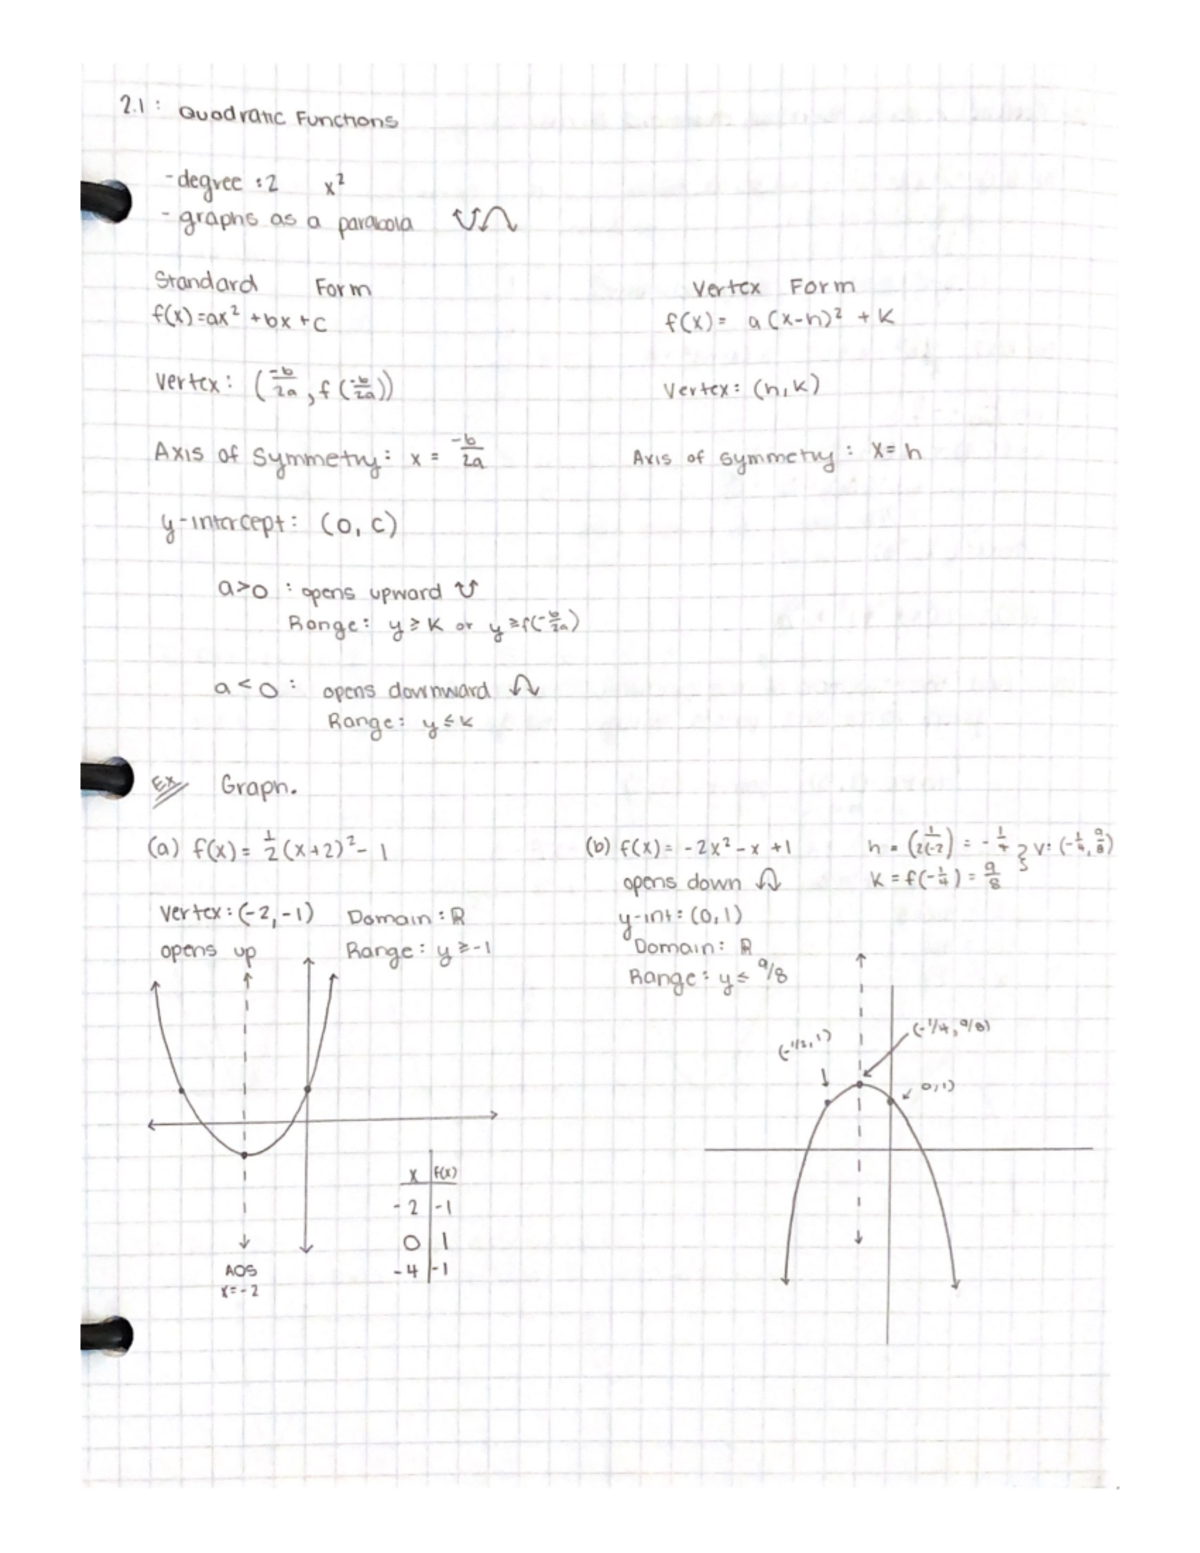 2.1: Quadratic Functions
- degree : 2 x²
- graphs as a parabola
Standard Form
f(x) = ax² + bx + c
Vertex: (-b/2a, f(-b/2a))
Axis of Symmetry: x = -b/2a
y-intercept: (0, c)
Vertex Form
f(x) = a(x-h)² + k
Vertex: (h, k)
Axis of symmetry: x = h
a>0 : opens upward
Range: y ≥ k or y ≥ f(-b/2a)
a<0 : opens downward
Range: y ≤ k
Ex Graph.
(a) f(x) = 1/2 (x+2)² - 1
Vertex: (-2, -1) Domain: ℝ
opens up Range: y ≥ -1
AOS
x = -2
x f(x)
-2 -1
0 1
-4 -1
(b) f(x) = -2x² - x + 1
h = (1/2(-2)) = -1/4 } v: (-1/4, 9/8)
k = f(-1/4) = 9/8
opens down
y-int: (0, 1)
Domain: ℝ
Range: y ≤ 9/8
(-1/2, 1)
(-1/4, 9/8)
0, 1)